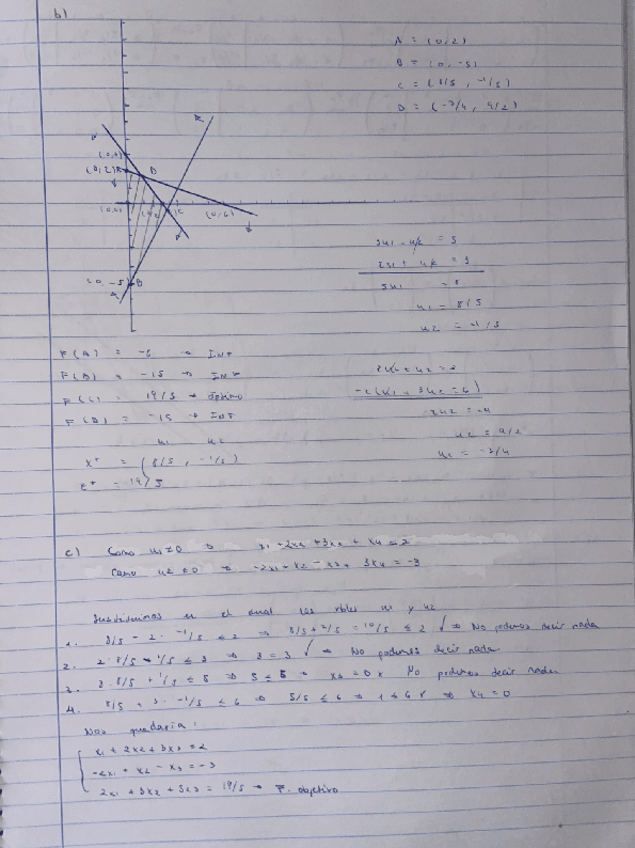 b)
A = (0,2)
B = (0,-5)
C = (8/5, -1/5)
D = (-3/4, 9/2)
(0,2)
D
(0,0)
C
(0,6)
(0,-5)
B
3u1 - u2 = 5
2u1 + u2 = 3
5u1 = 8
u1 = 8/5
F(A) = -6 → INF
F(B) = -15 → INF
F(C) = 19/5 → óptimo
F(D) = -15 → INF
u2 = 9/2
u1 = -3/4
u1 u2
x* = (8/5, -1/5)
z* = 19/5
c) Como u1≠0 ⇒ x1 + 2x2 + 3x3 + x4 = 2
Como u2≠0 ⇒ -2x1 + x2 - x3 + 3x4 = -3
Substituimos en el dual las vbles u1 y u2
1. 8/5 - 2·-1/5 ≤ 2 ⇒ 8/5 + 2/5 = 10/5 ≤ 2 ✓ ⇒ No podemos decir nada
2. 2·8/5 - 1/5 ≤ 3 ⇒ 3 = 3 ✓ ⇒ No podemos decir nada
3. 3·8/5 + 1/5 ≤ 5 ⇒ 5 ≤ 5 ⇒ x3 = 0 x No podemos decir nada
4. 8/5 + 3·-1/5 ≤ 6 ⇒ 5/5 ≤ 6 ⇒ 1 ≤ 6 ⇒ x4 = 0
Nos quedaría:
x1 + 2x2 + 3x3 = 2
-2x1 + x2 - x3 = -3
2x1 + 3x2 + 5x3 = 19/5 → F. objetivo